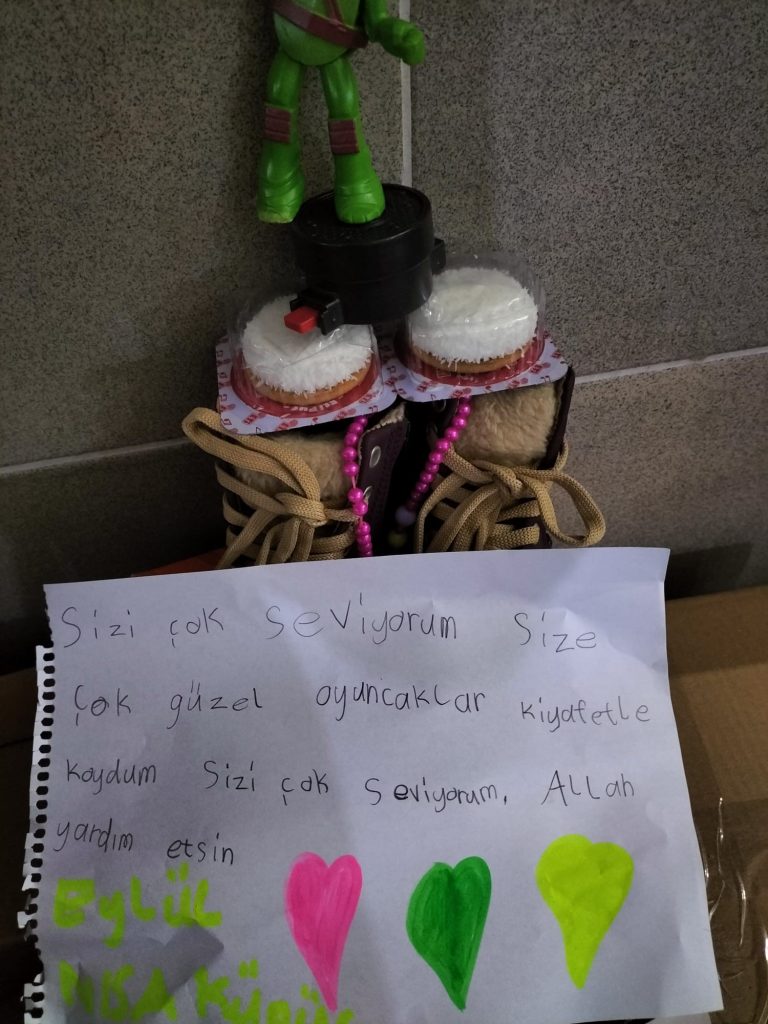 Sizi çok seviyorum Size
çok güzel oyuncaklar kiyafetle
koydum Sizi çok seviyorum, Allah
yardım etsin
Eylül